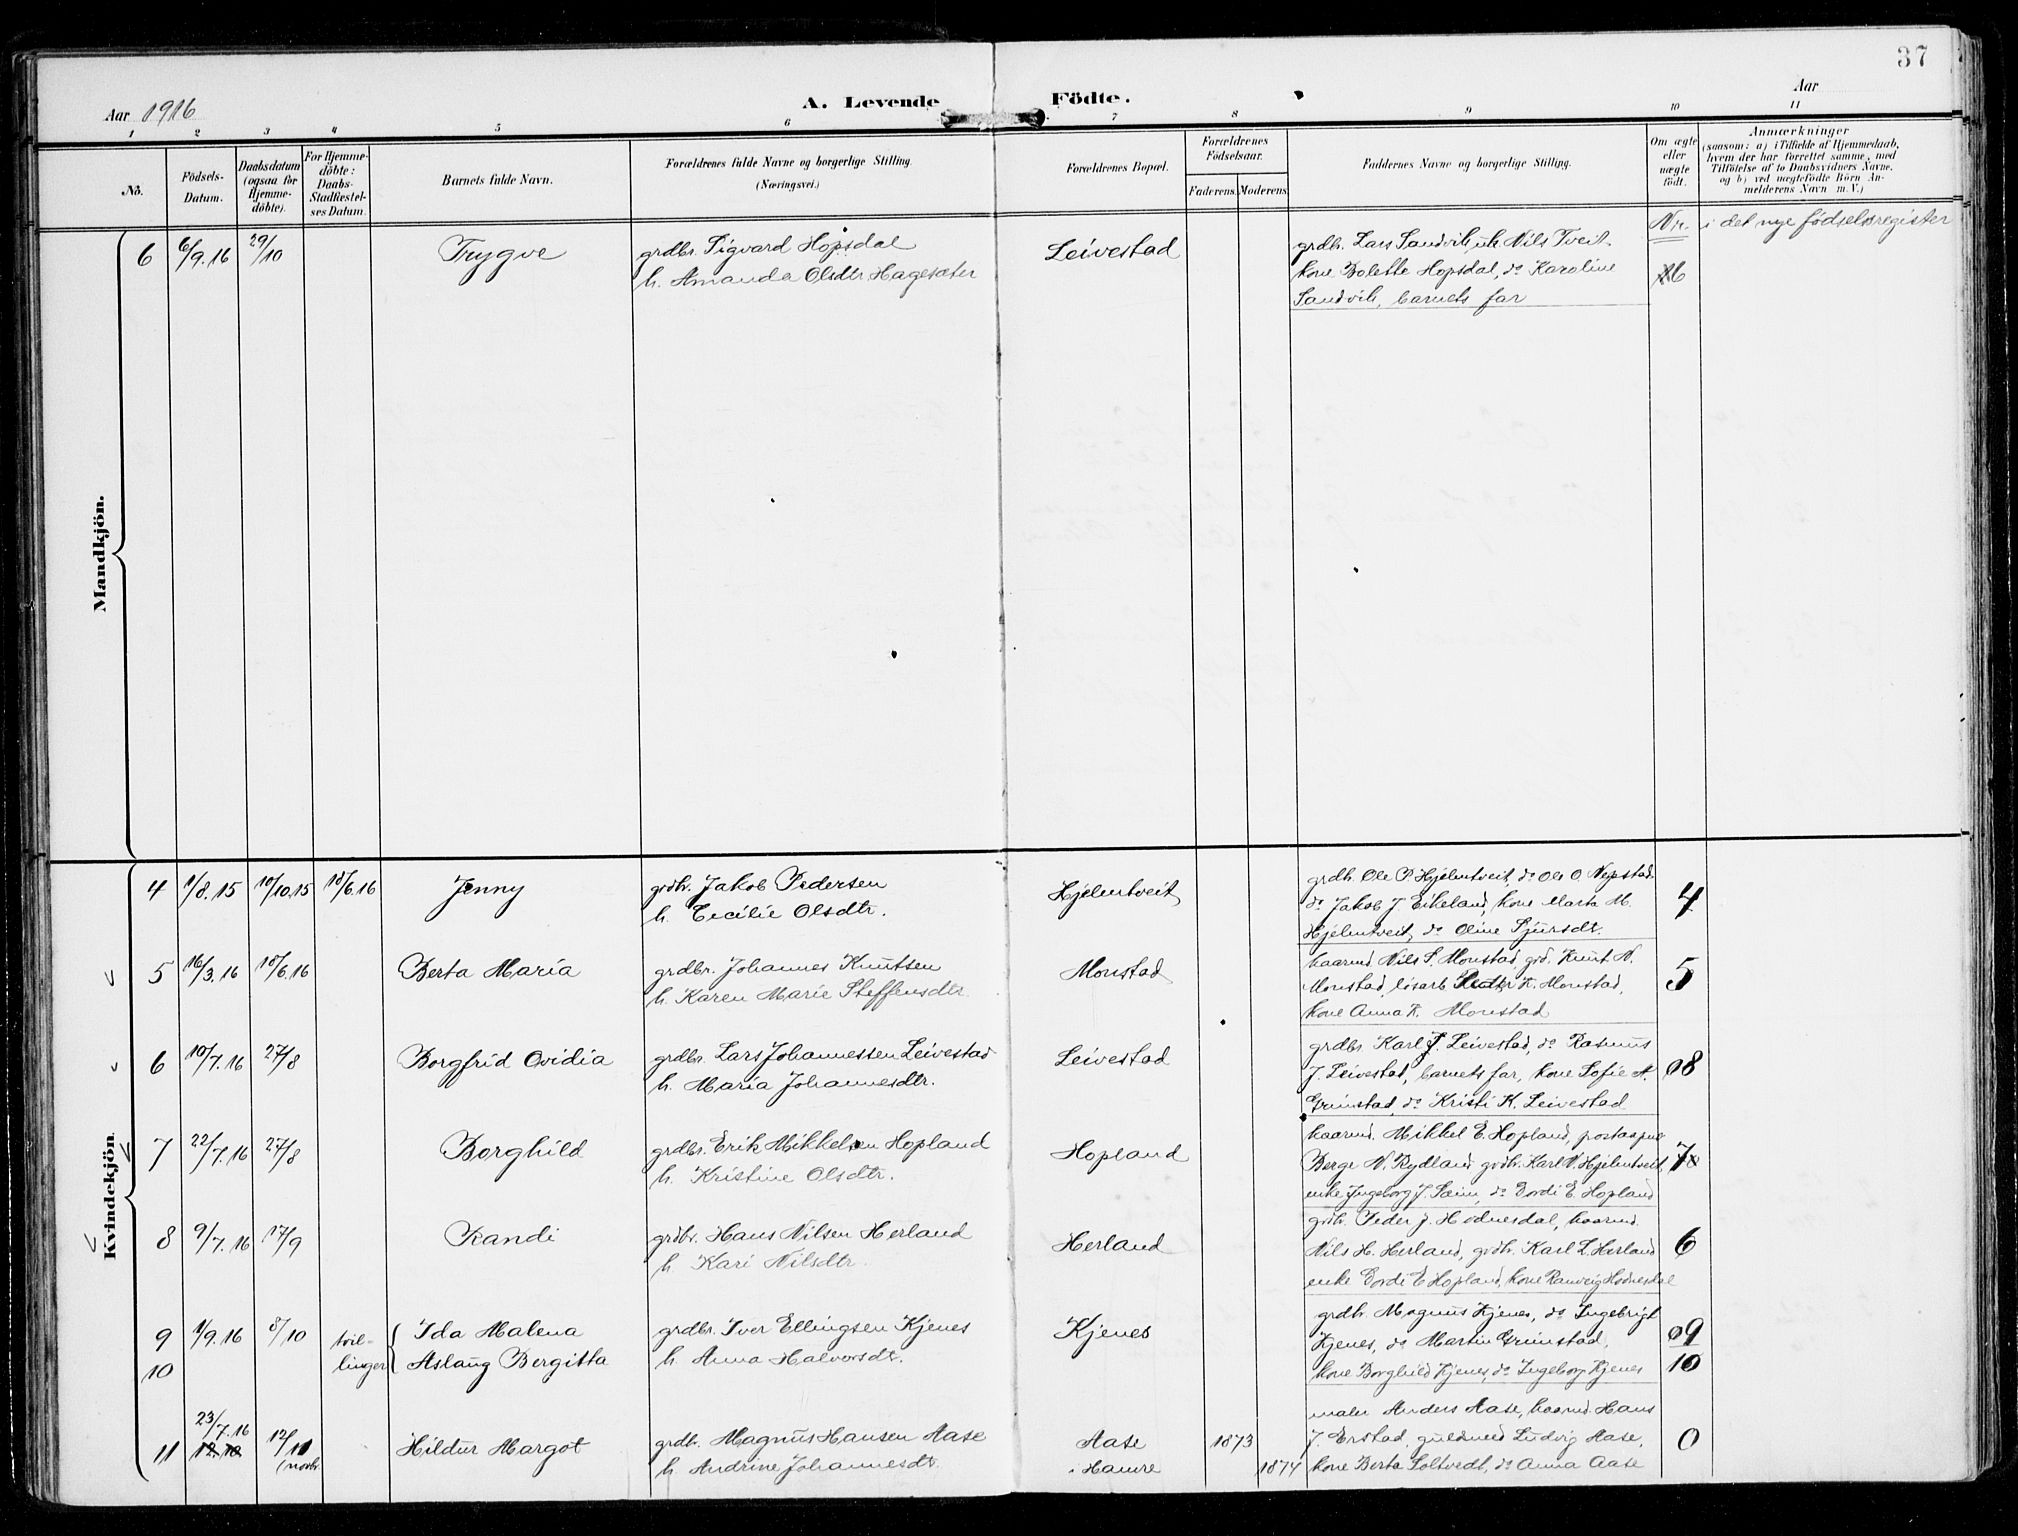 37
Aar 1916
A. Levende Födte.
Aar
1 2 3 4 5 6 7 8 9 10 11
No.
Födsels-Datum.
Daabsdatum (ogsaa for Hjemme-döbte).
For Hjemme-döbte: Daabs-Stadfæstel-ses Datum.
Barnets fulde Navn.
Forældrenes fulde Navne og borgerlige Stilling.
(Næringsvei.)
Forældrenes Bopæl.
Forældrenes Födselsaar.
Faderens. Moderens.
Faddernes Navne og borgerlige Stilling.
Om ægte eller uægte födt.
Anmærkninger
(saasom: a) i Tilfælde af Hjemmedaab,
hvem der har forrettet samme, med
Tilföielse af to Daabsvidners Navne.
og b) ved uægtefödte Börn An-
melderens Navn m. V.)
Nr. i det nye fødselsregister
Mandkjön.
6 6/9.16 29/10 Trygve
grdbr. Sigvard Hopsdal
h. Amanda Olsdtr Hagesæter
Leivestad
grdb. Lars Sandvik, Nils Tveit.
kone Bolette Hopsdal, do Karoline
Sandvik, barnets far
16
Kvindekjön.
4 1/8.15 10/10.15 18/6.16 Jenny
grdbr. Jakob Pedersen
h. Cecilie Olsdtr.
Hjelmtveit
grdb. Ole P. Hjelmtveit, do Ole O. Nepstad
do Jakob J. Eikeland, kone Marta M.
Hjelmtveit, do Oline Sjursdt.
4
5 16/3.16 18/6.16 Berta Maria
grdbr. Johannes Knutsen
h. Karen Marie Steffensdtr
Monstad
kaarmd Nils S. Monstad, grd. Knut N.
Monstad, løsarb K. Monstad,
kone Anna K. Monstad
5
6 10/7.16 27/8 Borgfrid Ovidia
grdbr. Lars Johannessen Leivestad
h. Maria Johannesdtr.
Leivestad
grdbr. Karl J. Leivestad, do Rasmus
J. Leivestad, barnets far, kone Sofie A.
Grimstad, do Kristi K. Leivestad
8
7 22/7.16 27/8 Borghild
grdbr. Erik Mikkelsen Hopland
h. Kristine Olsdtr.
Hopland
kaarmd. Mikkel E. Hopland,
Berge N. Rydland grdb. Karl N. Hjelmtveit,
enke Ingeborg J. Sæim, do Gordi E. Hopland
7
8 9/7.16 17/9 Randi
grdbr. Hans Nilsen Herland
h. Kari Nilsdtr.
Herland
grdb. Peder J. Hodnesdal, kaarmd.
Nils H. Herland, grdb. Karl L. Herland
enke Gordi E Hopland, kone Ranveig Hodnesdal
6
9 1/9.16 8/10 tvil- Ida Malena
10 linger Aslaug Bergitta
grdbr. Iver Ellingsen Kjenes
h. Anna Halvorsdt.
Kjenes
grdb. Magnus Kjenes, do Ingebrigt
Kjenes, do Martin Grimstad,
kone Borghild Kjenes, do Ingeborg Kjenes
9
10
11 23/7.16 12/11 (novbr. Hildur Margot
grdb. Magnus Hansen Aase
h. Andrine Johannesdt.
Aase
i Hamre
1873
1874
maler Anders Aase, kaarmd. Hans
J. Erstad, guldsmed Ludvig Aase,
kone Berta Soltvedt, do Anna Aase
0